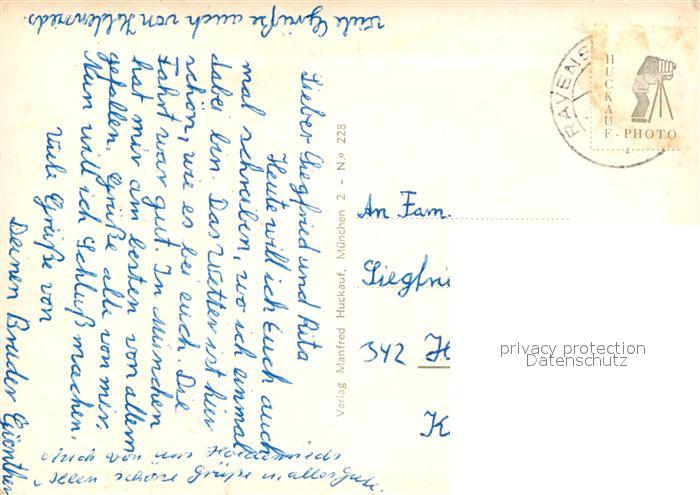 Lieber Siegfried und Rita
Heute will ich Euch auch
mal schreiben, wo ich einmal
dabei bin. Das Wetter ist hier
schön, wie es bei euch. Die
Fahrt war gut. In München
hat mir am besten von allem
gefallen. Grüße alle von mir.
Nun will ich Schluß machen.
Viele Grüße von
Deinen Bruder Günther
Viele Grüße auch von
Auch von uns
Allen schöne Grüße u. alles Gute.
Verlag Manfred Huckauf, München 2 - N.º 228
RAVENS
HUCKAUF-PHOTO
An Fam.
Siegfri
342 H
K
privacy protection
Datenschutz